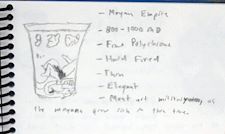 - Mayan Empire
- 800-1000 AD
- Fine Polychrome
- Hand Fired
- Thin
- Elegant
- Most art militaristic, as
the mayans grew rich in this time.